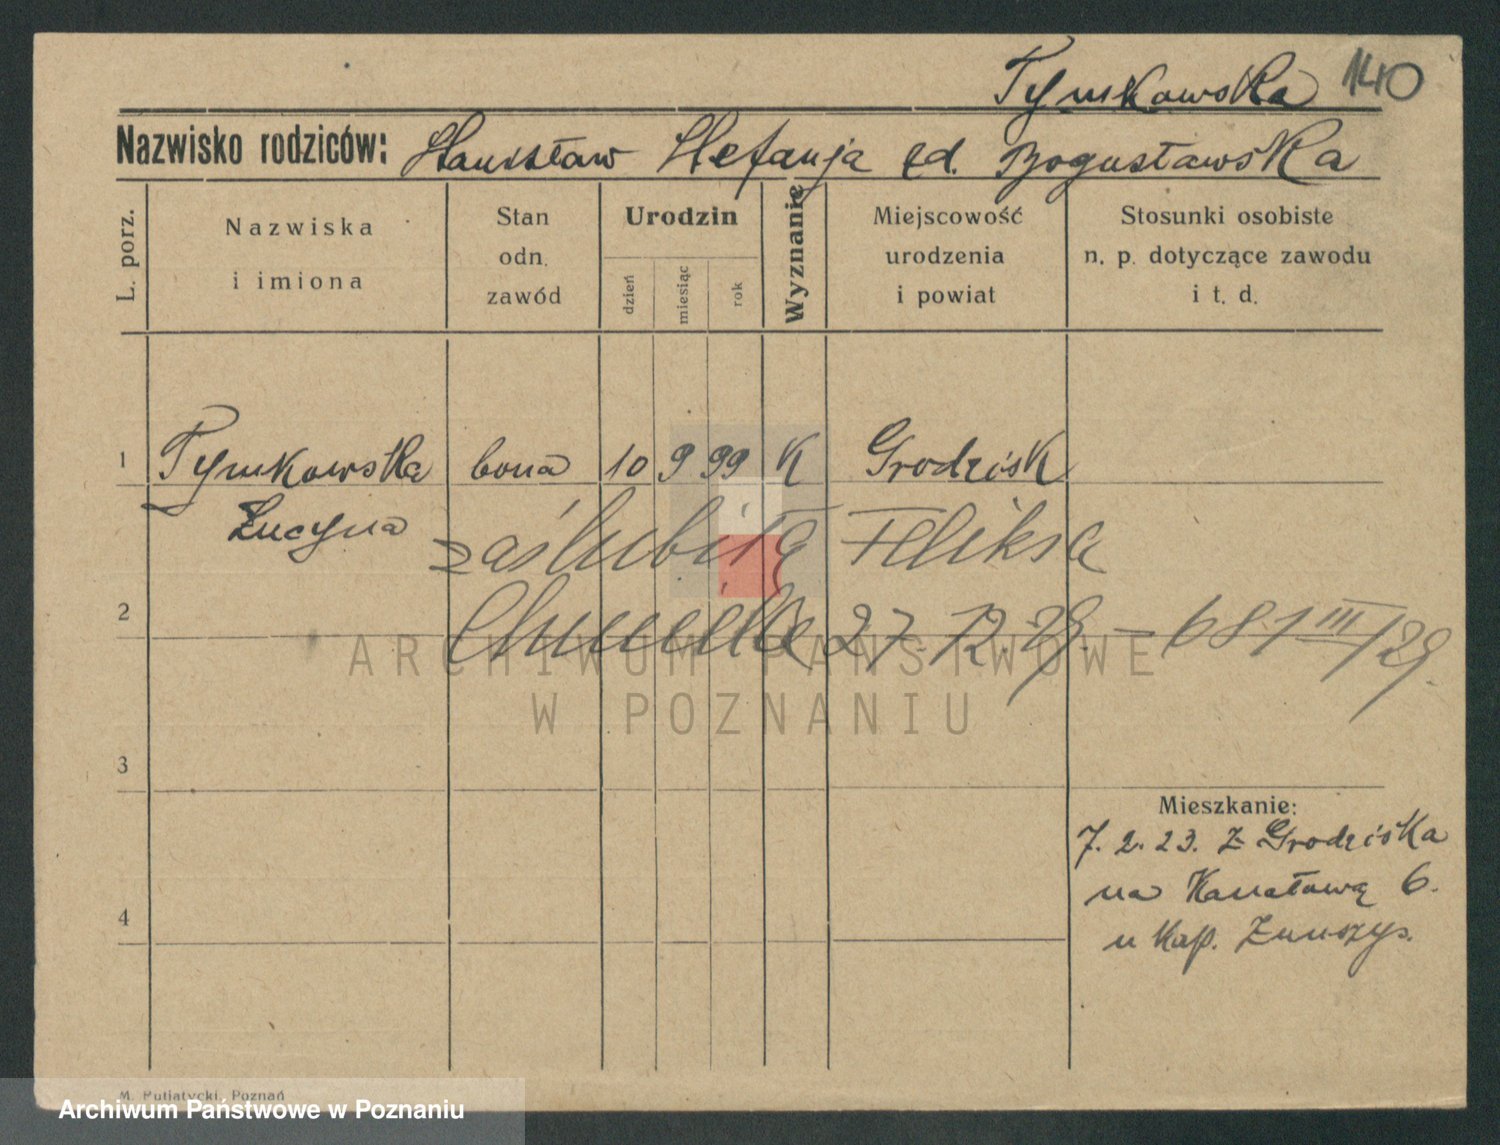 Tymkowska 140
Nazwisko rodziców: Stanisław Stefanja zd. Bogusławska
L. porz.
Nazwiska i imiona
Stan odn. zawód
Urodzin
dzień
miesiąc
rok
Wyznanie
Miejscowość urodzenia i powiat
Stosunki osobiste n. p. dotyczące zawodu i t. d.
1 Tymkowska bona 10 9 99 K Grodzisk
Łucyna
zaślubiła Feliksa
2
27.12.29. – 681 III/29.
3
4
Mieszkanie:
7. 2. 23. z Grodziska
na Kanałową 6.
u Kap.
ARCHIWUM PAŃSTWOWE
W POZNANIU
M. Putiatycki, Poznań
Archiwum Państwowe w Poznaniu